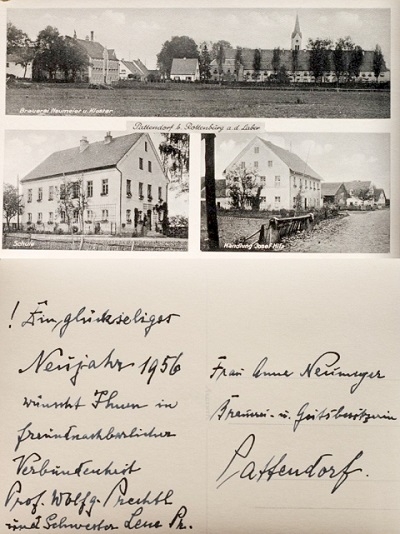 Brauerei Neumeier u. Kloster
Pattendorf b. Rottenburg a.d. Laber
Schule
Handlung Josef Hilz
! Ein glückseliges
Neujahr 1956
wünscht Ihnen in
freundnachbarlicher
Verbundenheit
Prof. Wolfg. Prechtl
und Schwester Lena Pr.
Frau Anna Neumeyer
Brauerei- u. Gutsbesitzerin
Pattendorf.